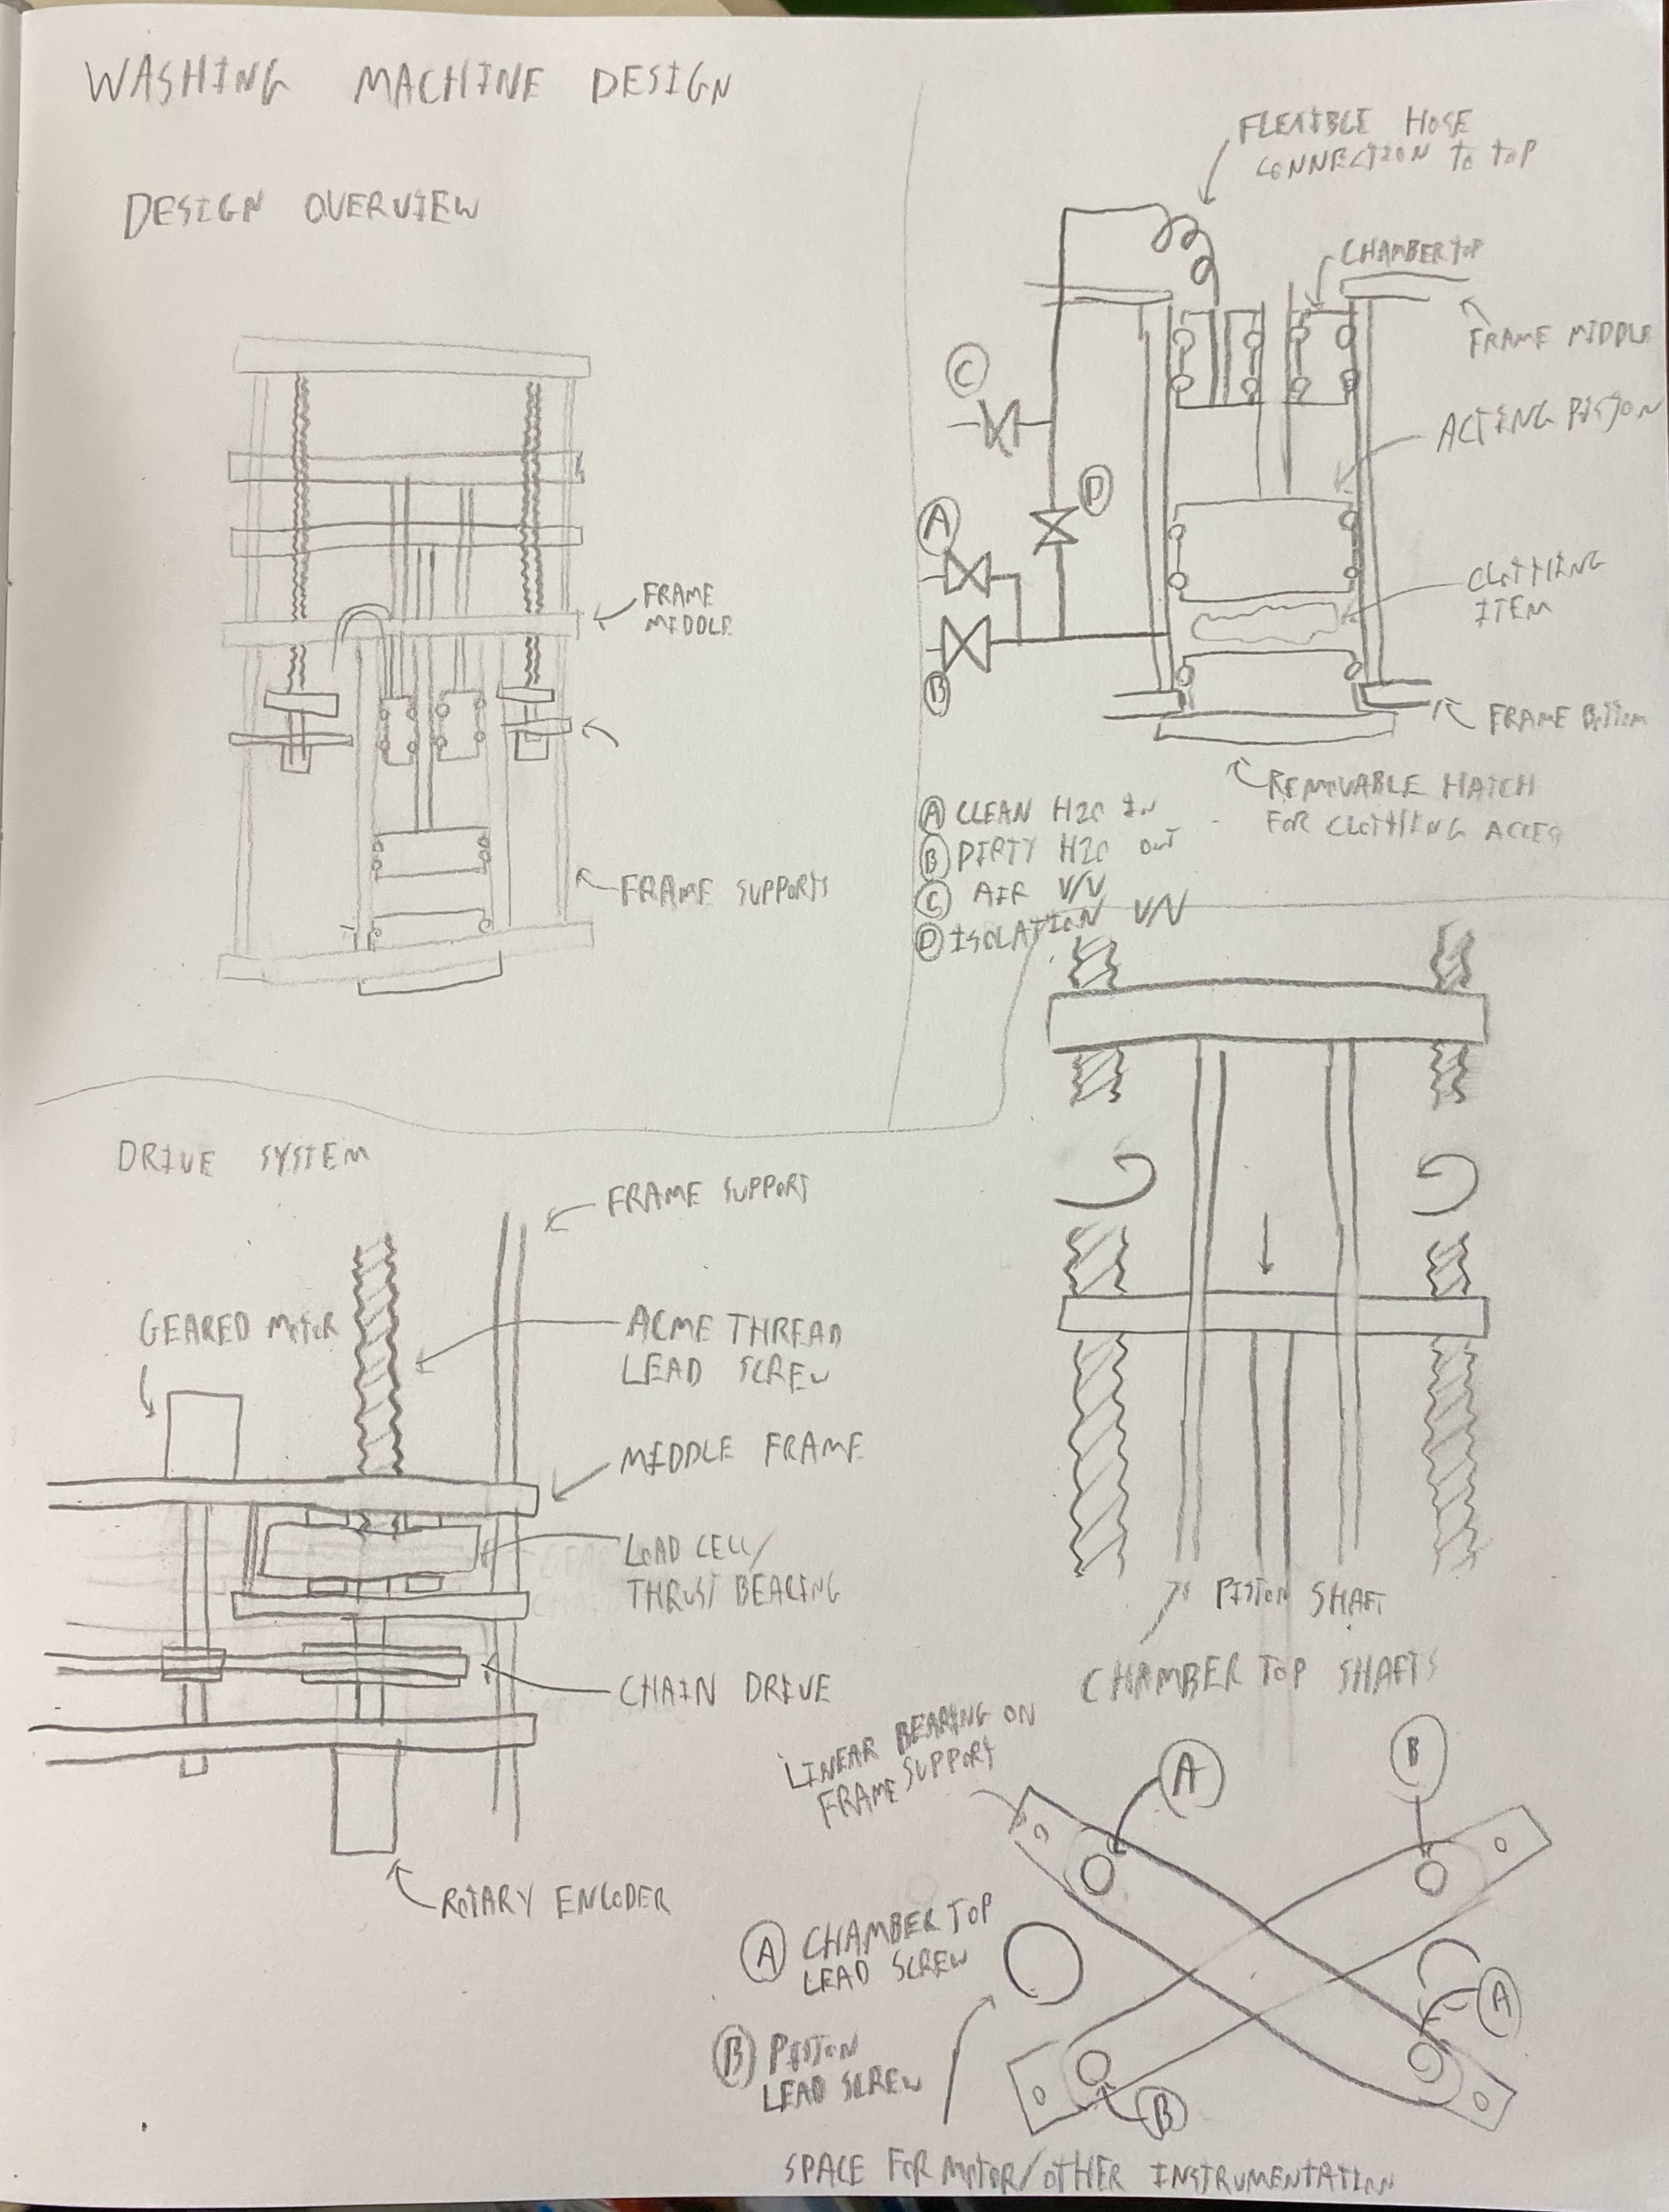 WASHING MACHINE DESIGN
DESIGN OVERVIEW
FRAME
MIDDLE
FRAME SUPPORTS
FLEXIBLE HOSE
CONNECTION TO TOP
CHAMBER TOP
FRAME MIDDLE
ACTING PISTON
CLOTHING
ITEM
FRAME BOTTOM
REMOVABLE HATCH
FOR CLOTHING ACCES
C
D
A
B
A CLEAN H2O IN
B DIRTY H2O OUT
C AIR V/V
D ISOLATION V/V
PISTON SHAFT
CHAMBER TOP SHAFTS
DRIVE SYSTEM
FRAME SUPPORT
GEARED MOTOR
ACME THREAD
LEAD SCREW
MIDDLE FRAME
LOAD CELL/
THRUST BEARING
CHAIN DRIVE
ROTARY ENCODER
LINEAR BEARING ON
FRAME SUPPORT
A
B
A
B
A CHAMBER TOP
LEAD SCREW
B PISTON
LEAD SCREW
SPACE FOR MOTOR/OTHER INSTRUMENTATION